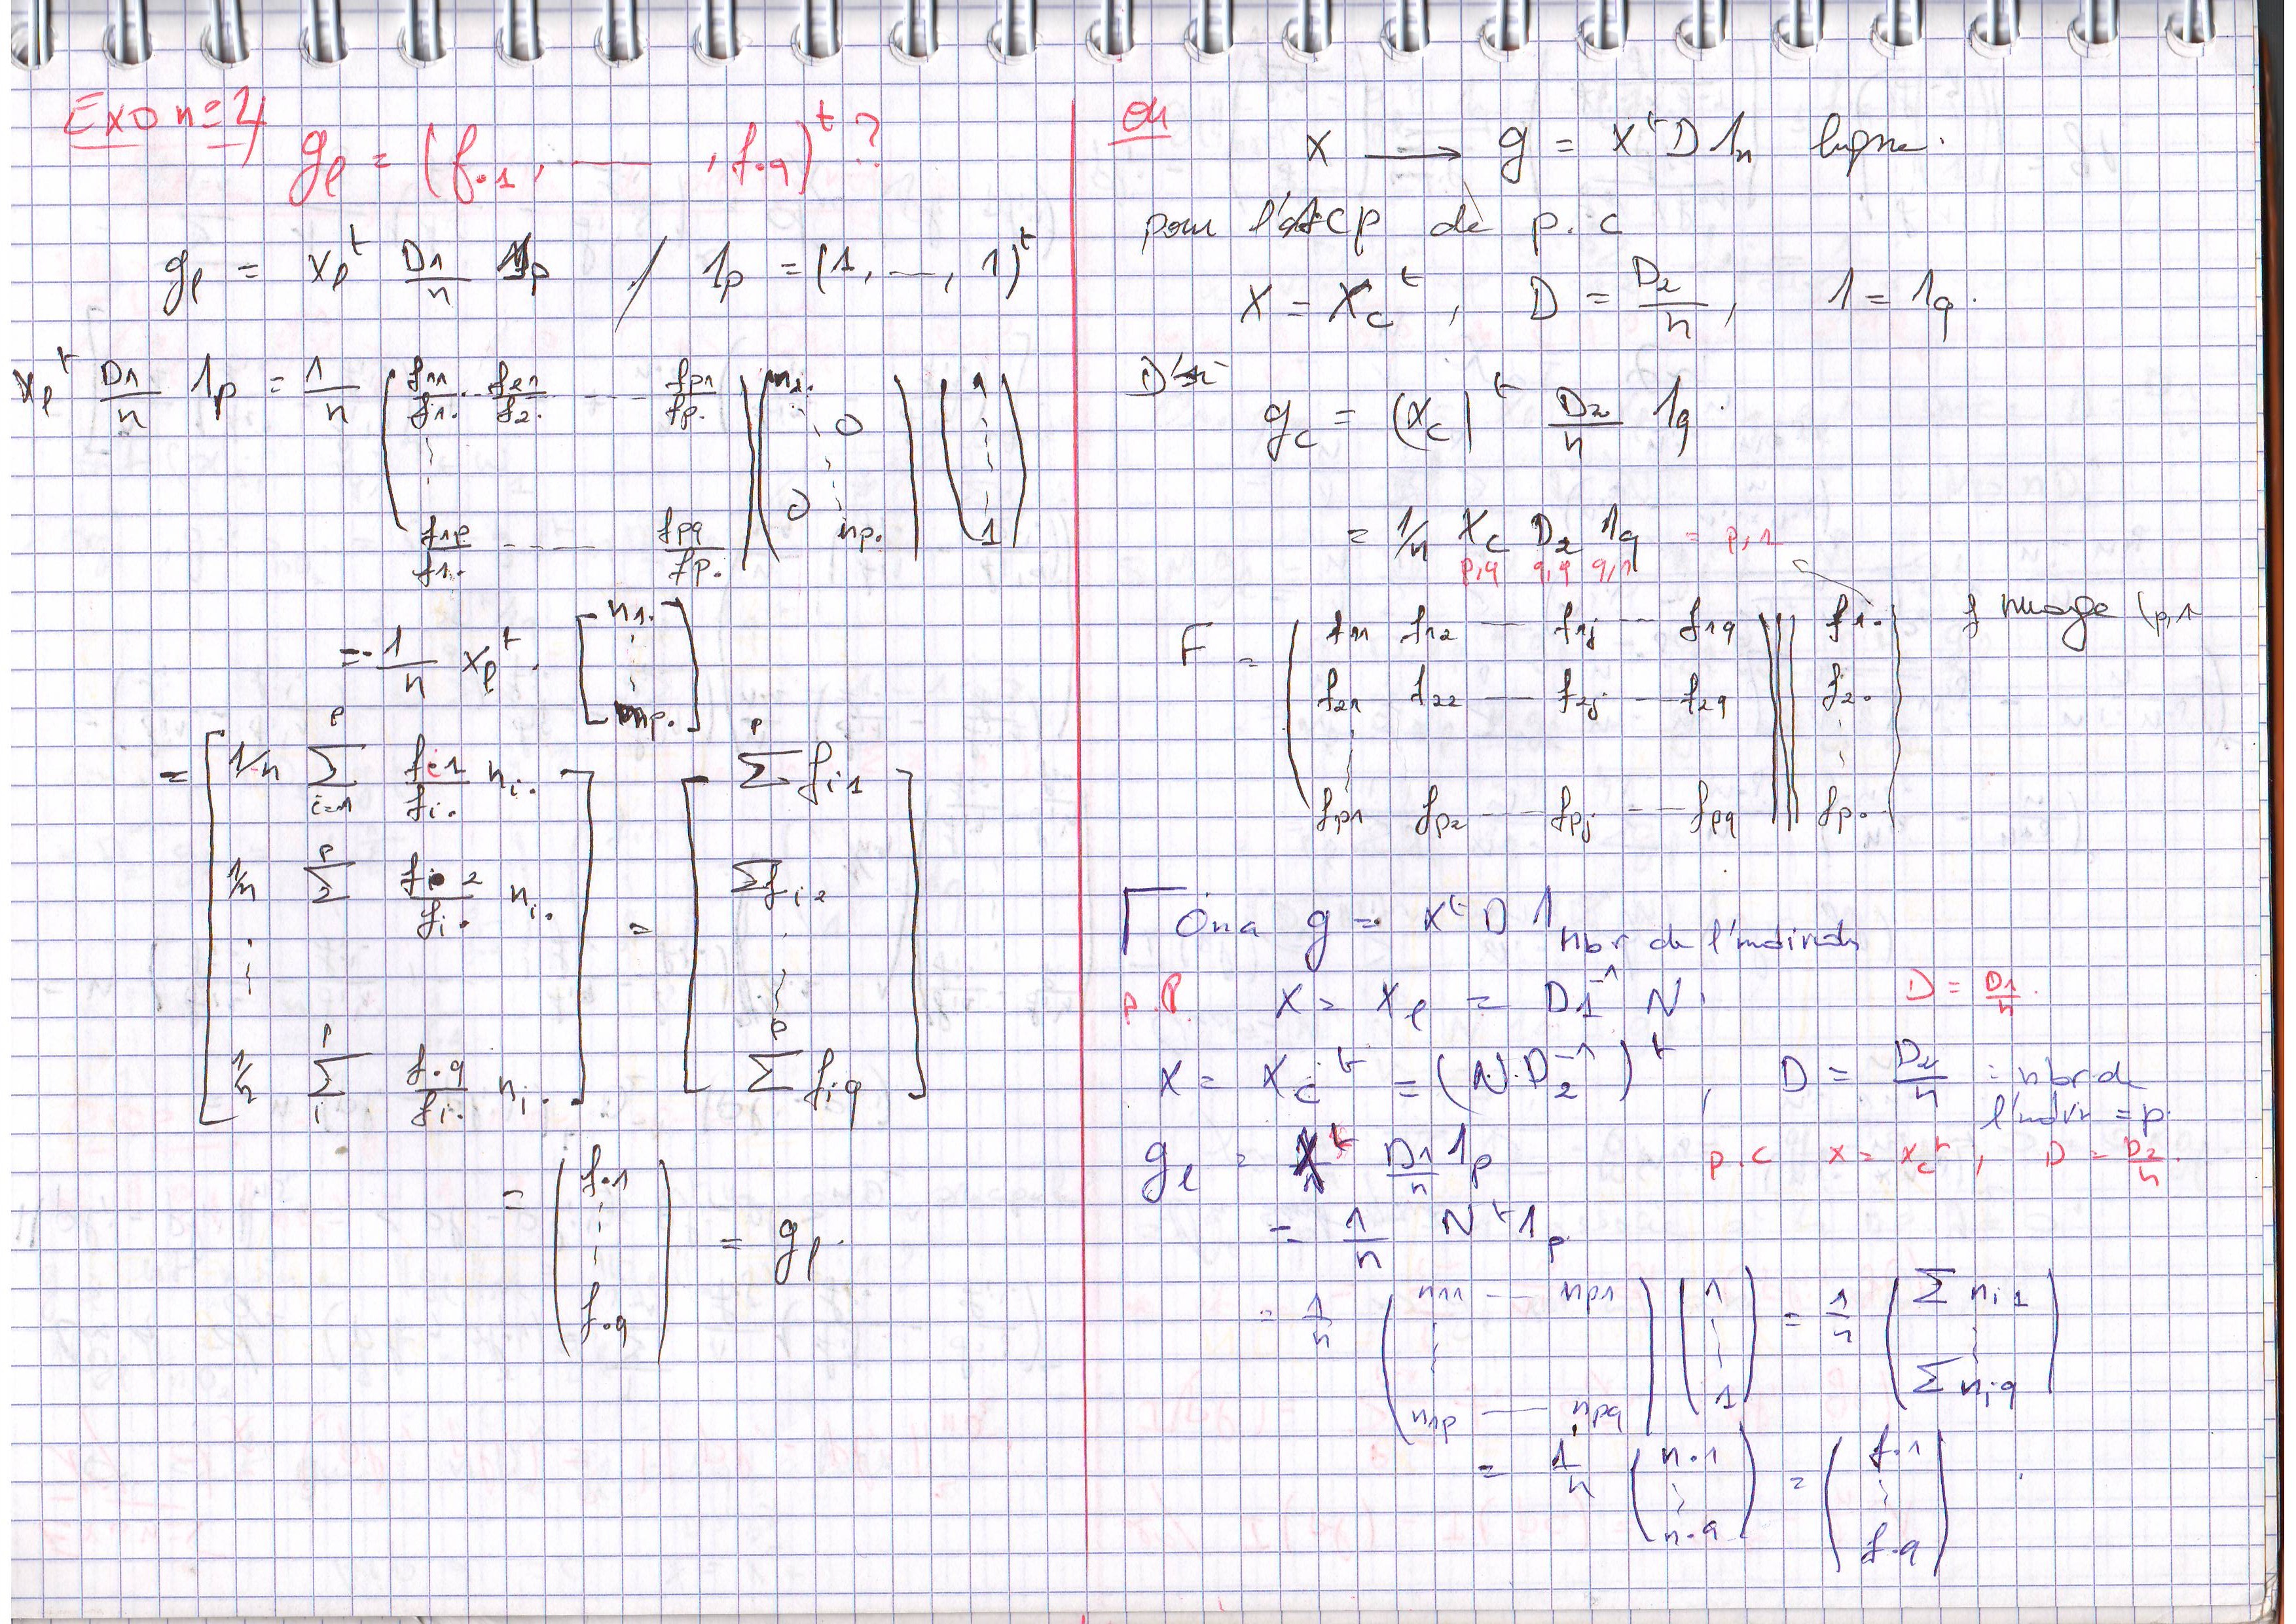 Exo n=2
g_l = (f.1, — , f.q)^t ?
g_l = X_l^t D1/n 1_p / 1_p = (1, —, 1)^t
X_l^t D1/n 1_p = 1/n ( f11/f1. f21/f2. --- fp1/fp. ⋮ f1p/f1. ---- fpq/fp. ) ( n1. ⋱ 0 0 np. ) ( 1 ⋮ 1 )
= 1/n X_l^t . [ n1. ⋮ np. ]
= [ 1/n Σ_{i=1}^p fi1/fi. ni. = [ Σ^p fi1
1/n Σ^p fi2/fi. ni. Σ fi2
⋮ ⋮
1/n Σ_i^p f.q/fi. ni. ] Σ^p fiq ]
= ( f.1 ⋮ f.q ) = g_l.
ou
X ⟶ g = X^t D 1_n ligne.
pour l'ACP de p.c
X = X_c^t , D = D2/n , 1 = 1_q.
g_c = (X_c)^t D2/n 1_q.
= 1/n X_c D2 1_q = p,1
p,q q,q q,1
F = ( f11 f12 — f1j -- f1q ) ( f1. ) f marge (p,1
f21 f22 — f2j -- f2q f2.
⋮ ⋮
fp1 fp2 --- fpj --- fpq fp.
Ona g = X^t D 1 nbr de l'individu
p.l. X = X_l = D1^-1 N. D = D1/n.
X = X_c^t = (N.D2^-1)^t , D = D2/n : nbr de
l'indvi = p.
g_l = X^t D1/n 1_p p.c X = X_c^t , D = D2/n.
= 1/n N^t 1_p
= 1/n ( n11 --- np1 ⋮ n1p — npq ) ( 1 ⋮ 1 ) = 1/n ( Σ ni1 ⋮ Σ niq )
= 1/n ( n.1 ⋮ n.q ) = ( f.1 ⋮ f.q ) .